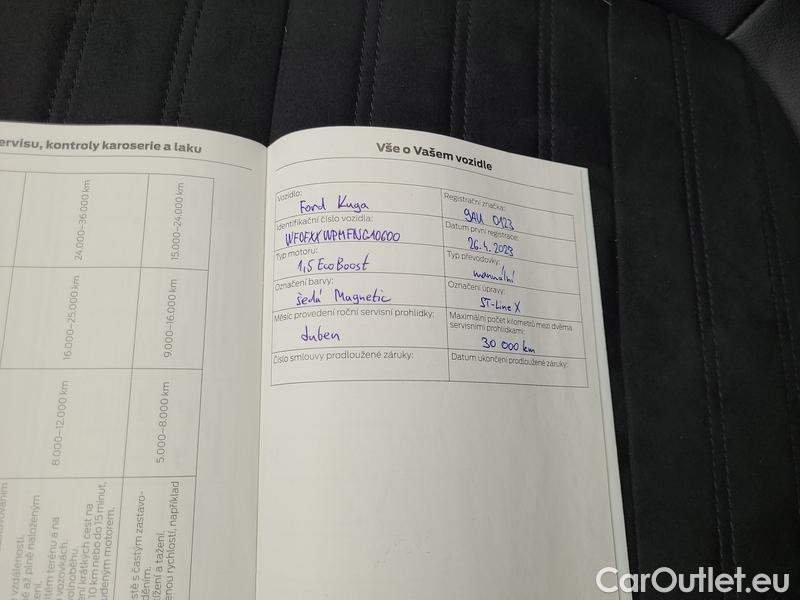 ervisu, kontroly karoserie a laku
24.000–36.000 km
15.000–24.000 km
16.000–25.000 km
9.000–16.000 km
8.000–12.000 km
5.000–8.000 km
vzdálenosti.
é až plně naloženým
ení.
tém terénu a na
vozovkách.
volnoběhu.
ení krátkých cest na
10 km nebo do 15 minut,
udeným motorem.
stě s častým zastavo-
děním.
ížení a tažení.
enou rychlostí, například
Vše o Vašem vozidle
Vozidlo:
Ford Kuga
Registrační značka:
9AU 0123
Identifikační číslo vozidla:
WF0FXXWPMFNG10600
Datum první registrace:
26.4.2023
Typ motoru:
1,5 EcoBoost
Typ převodovky:
manuální
Označení barvy:
šedá Magnetic
Označení úpravy:
ST-Line X
Měsíc provedení roční servisní prohlídky:
duben
Maximální počet kilometrů mezi dvěma
servisními prohlídkami:
30 000 km
Číslo smlouvy prodloužené záruky:
Datum ukončení prodloužené záruky:
CarOutlet.eu